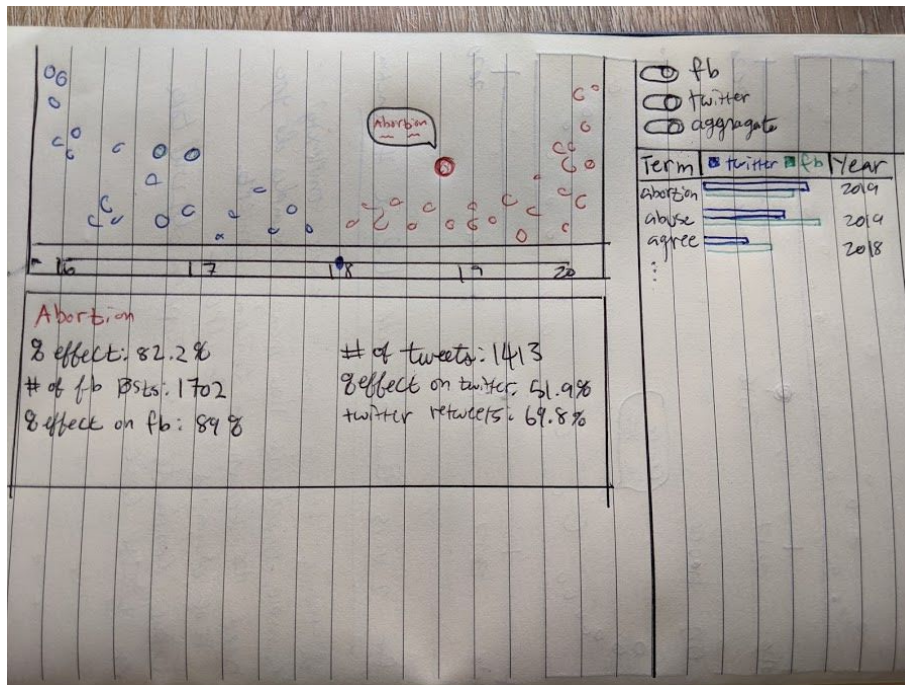 Abortion
16 17 18 19 20
Abortion
% effect: 82.2%
# of fb posts: 1702
% effect on fb: 89%
# of tweets: 1413
% effect on twitter: 51.9%
twitter retweets: 69.8%
fb
twitter
aggragate
Term twitter fb Year
abortion 2019
abuse 2019
agree 2018
⋮